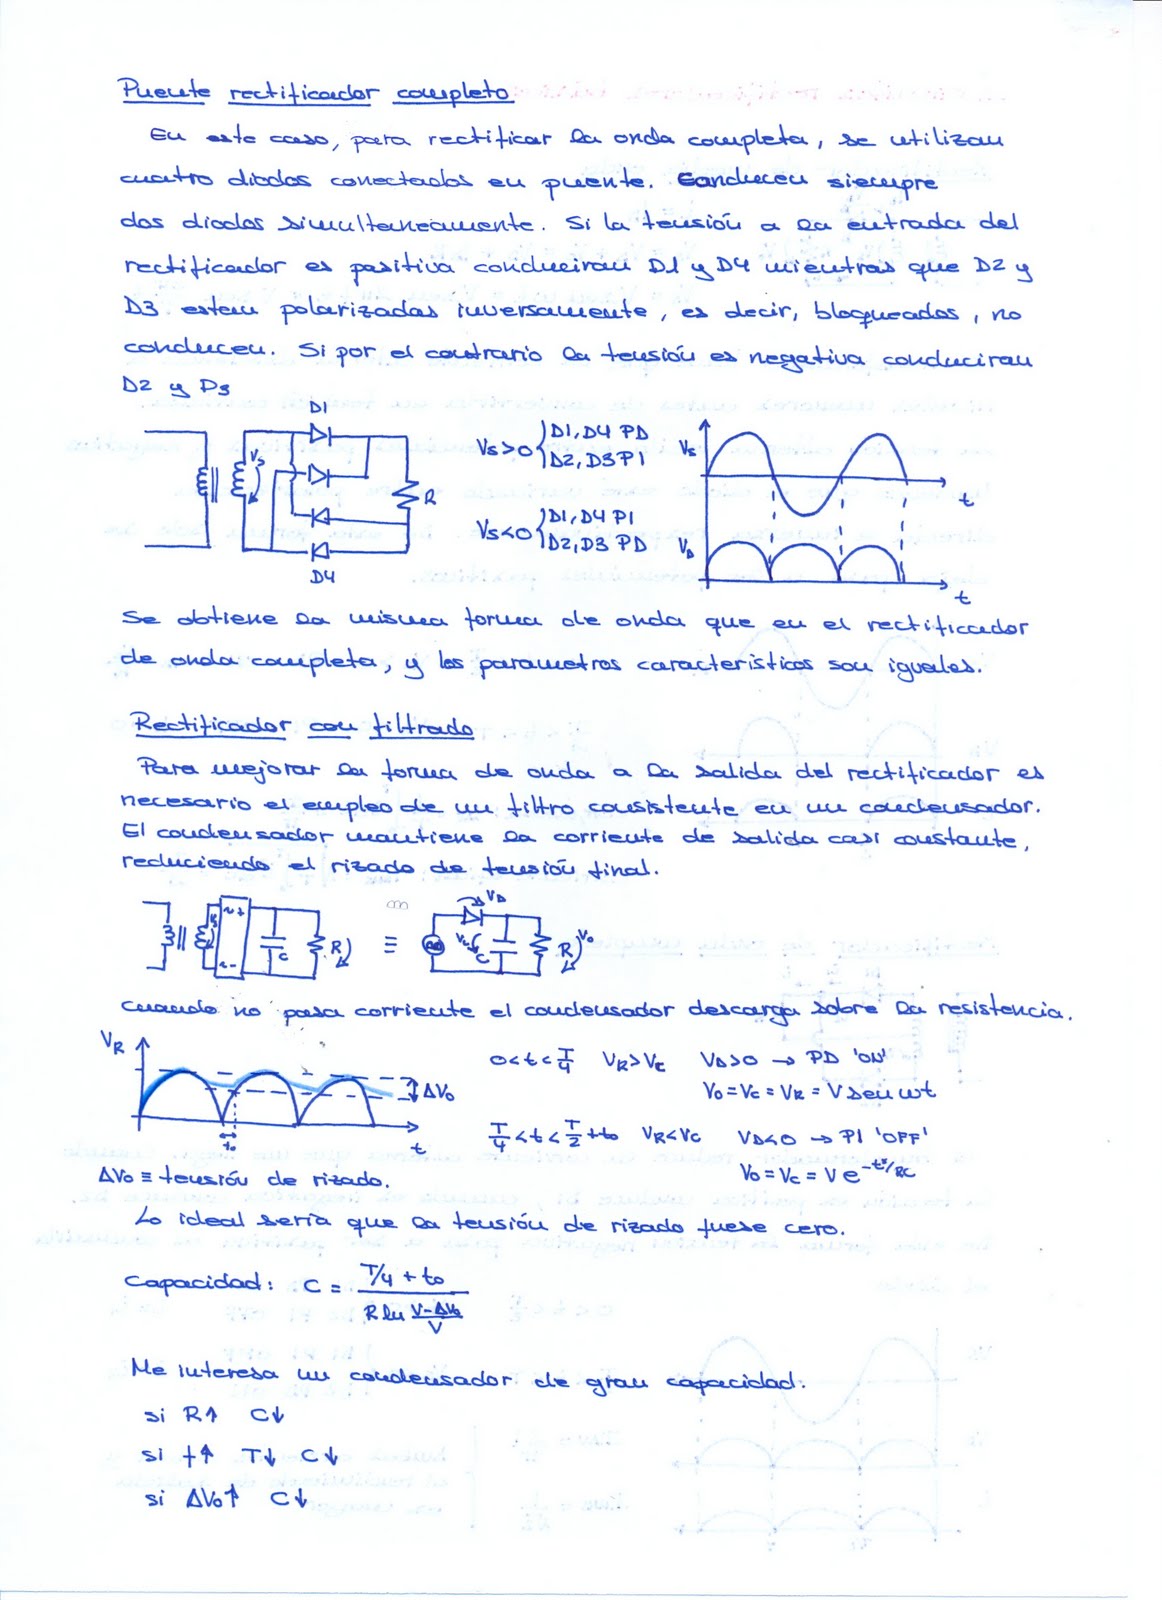 Puente rectificador completo
En este caso, para rectificar la onda completa, se utilizan
cuatro diodos conectados en puente. Conducen siempre
dos diodos simultaneamente. Si la tensión a la entrada del
rectificador es positiva conduciran D1 y D4 mientras que D2 y
D3 esten polarizadas inversamente, es decir, bloqueados, no
conducen. Si por el contrario la tensión es negativa conduciran
D2 y D3
D1
Vs
R
D4
Vs>0 { D1, D4 PD
D2, D3 PI
Vs<0 { D1, D4 PI
D2, D3 PD
Vs
t
VΔ
t
Se obtiene la misma forma de onda que en el rectificador
de onda completa, y los parametros característicos son iguales.
Rectificador con filtrado
Para mejorar la forma de onda a la salida del rectificador es
necesario el empleo de un filtro consistente en un condensador.
El condensador mantiene la corriente de salida casi constante,
reduciendo el rizado de tensión final.
Vs
~ +
~ -
C
R
≡
VΔ
Vc
C
R
Vo
Cuando no pasa corriente el condensador descarga sobre la resistencia.
VR
ΔVo
to
t
0<t<T/4 VR>Vc VΔ>0 → PD 'ON'
Vo=Vc=VR=V sen wt
T/4<t<T/2+to VR<Vc VΔ<0 → PI 'OFF'
Vo=Vc=V e^-t*/RC
ΔVo ≡ tensión de rizado.
Lo ideal sería que la tensión de rizado fuese cero.
Capacidad: C = (T/4 + to) / (R ln (V-ΔVo)/V)
Me interesa un condensador de gran capacidad.
si R↑ C↓
si f↑ T↓ C↓
si ΔVo↑ C↓